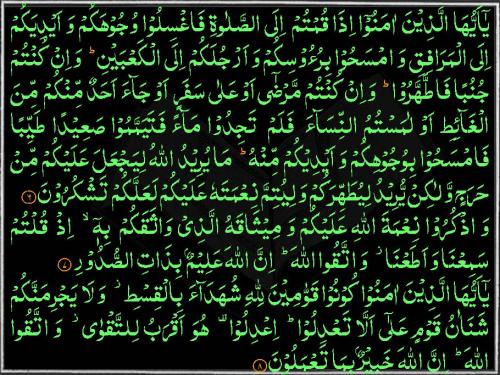 يٰۤاَيُّهَا الَّذِيْنَ اٰمَنُوْۤا اِذَا قُمْتُمْ اِلَى الصَّلٰوةِ فَاغْسِلُوْا وُجُوْهَكُمْ وَ اَيْدِيَكُمْ
اِلَى الْمَرَافِقِ وَ امْسَحُوْا بِرُءُوْسِكُمْ وَ اَرْجُلَكُمْ اِلَى الْكَعْبَيْنِ ؕ وَ اِنْ كُنْتُمْ
جُنُبًا فَاطَّهَّرُوْا ؕ وَ اِنْ كُنْتُمْ مَّرْضٰۤى اَوْ عَلٰى سَفَرٍ اَوْ جَآءَ اَحَدٌ مِّنْكُمْ مِّنَ
الْغَآئِطِ اَوْ لٰمَسْتُمُ النِّسَآءَ فَلَمْ تَجِدُوْا مَآءً فَتَيَمَّمُوْا صَعِيْدًا طَيِّبًا
فَامْسَحُوْا بِوُجُوْهِكُمْ وَ اَيْدِيْكُمْ مِّنْهُ ؕ مَا يُرِيْدُ اللّٰهُ لِيَجْعَلَ عَلَيْكُمْ مِّنْ
حَرَجٍ وَّ لٰكِنْ يُّرِيْدُ لِيُطَهِّرَكُمْ وَ لِيُتِمَّ نِعْمَتَهٗ عَلَيْكُمْ لَعَلَّكُمْ تَشْكُرُوْنَ ۶
وَ اذْكُرُوْا نِعْمَةَ اللّٰهِ عَلَيْكُمْ وَ مِيْثَاقَهُ الَّذِيْ وَاثَقَكُمْ بِهٖۤ ۙ اِذْ قُلْتُمْ
سَمِعْنَا وَ اَطَعْنَا ۫ وَ اتَّقُوا اللّٰهَ ؕ اِنَّ اللّٰهَ عَلِيْمٌۢ بِذَاتِ الصُّدُوْرِ ۷
يٰۤاَيُّهَا الَّذِيْنَ اٰمَنُوْا كُوْنُوْا قَوّٰمِيْنَ لِلّٰهِ شُهَدَآءَ بِالْقِسْطِ ۫ وَ لَا يَجْرِمَنَّكُمْ
شَنَاٰنُ قَوْمٍ عَلٰۤى اَلَّا تَعْدِلُوْا ؕ اِعْدِلُوْا ۫ هُوَ اَقْرَبُ لِلتَّقْوٰى ۫ وَ اتَّقُوا
اللّٰهَ ؕ اِنَّ اللّٰهَ خَبِيْرٌۢ بِمَا تَعْمَلُوْنَ ۸